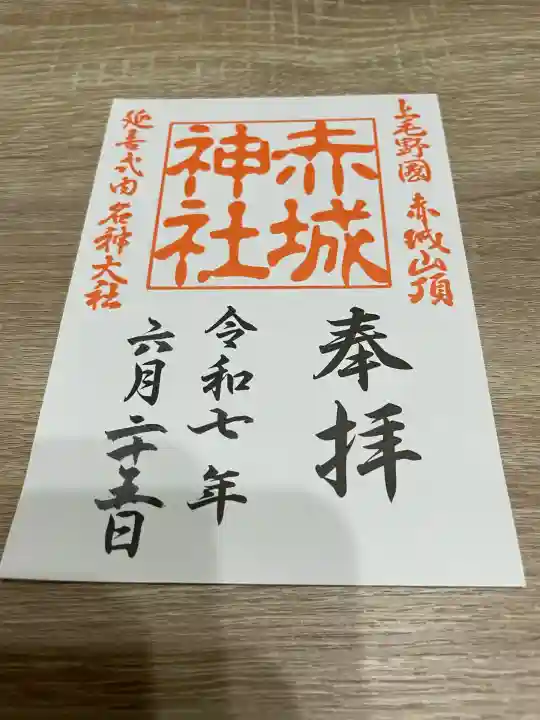 上毛野國 赤城山頂
赤城
神社
延喜式内 名神大社
奉拝
令和七年
六月二十五日